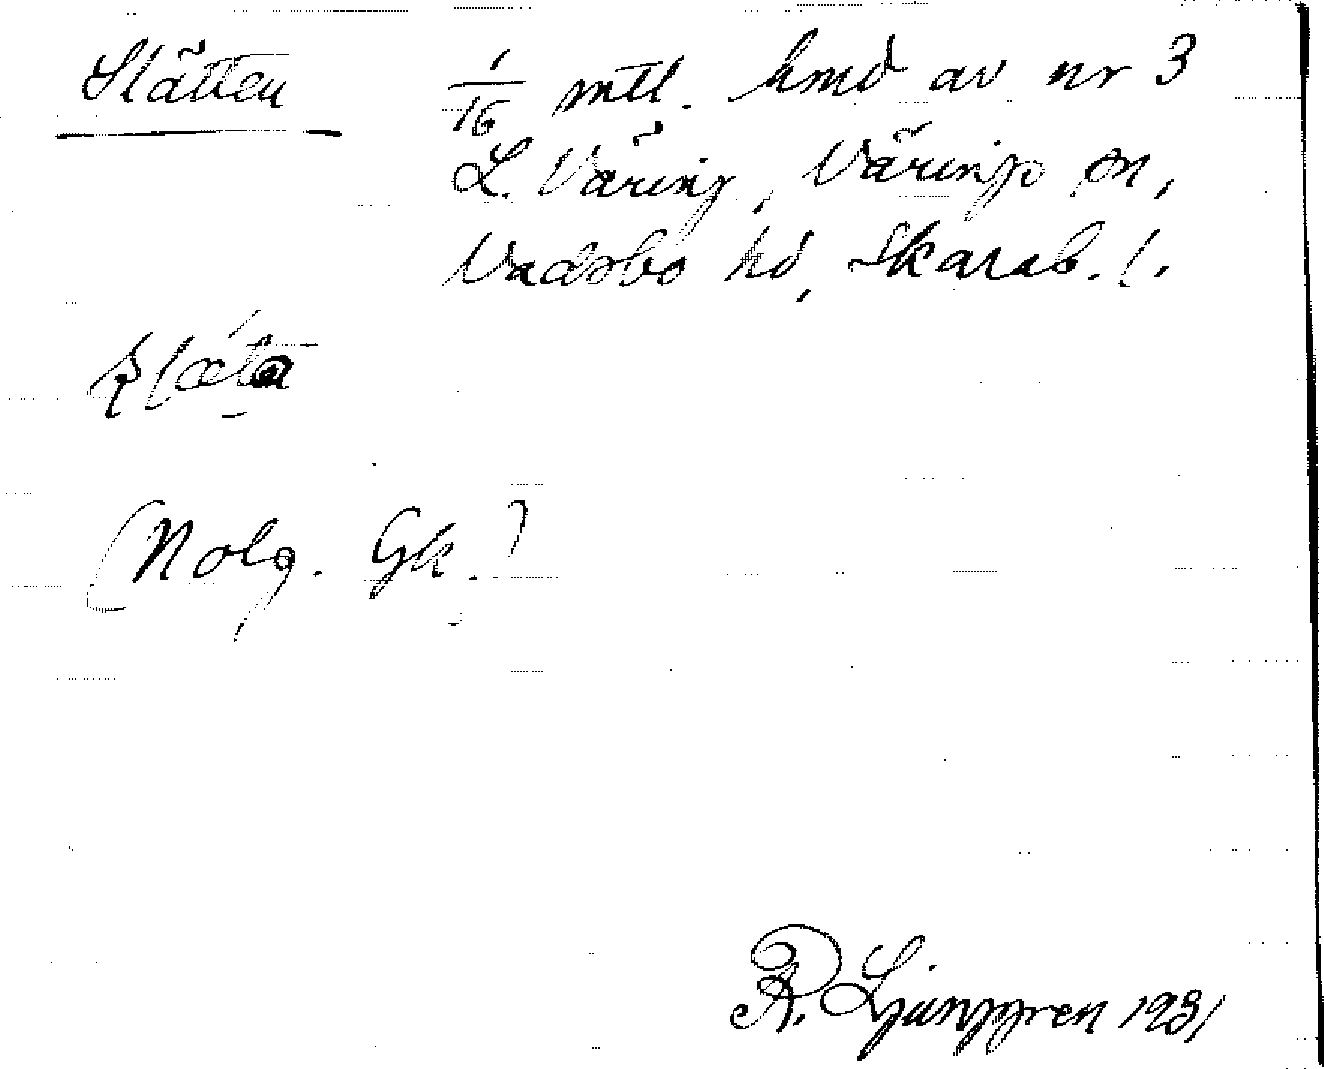 Slätten 1/16 mtl. hmd av nr 3
L. Väring, Värings sn,
Vadsbo hd, Skarab. l.
slǽta
(Nolg. Gk.)
R. Ljunggren 1931